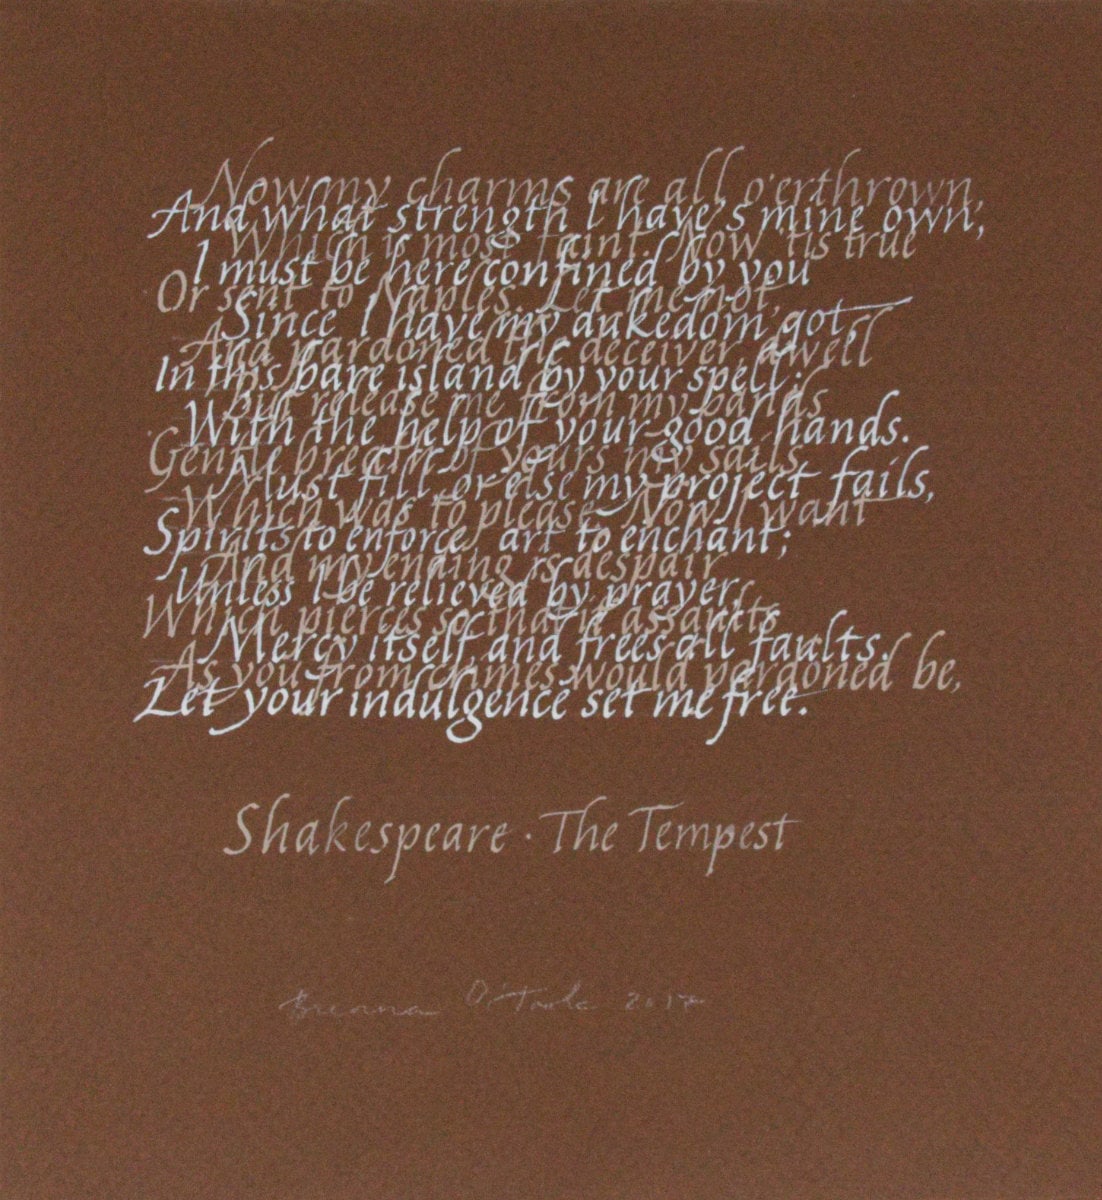 Now my charms are all o'erthrown,
And what strength I have's mine own,
Which is most faint. Now 'tis true
I must be here confined by you
Or sent to Naples. Let me not,
Since I have my dukedom got,
And pardoned the deceiver dwell
In this bare island by your spell;
But release me from my bands
With the help of your good hands.
Gentle breath of yours my sails
Must fill, or else my project fails,
Which was to please. Now I want
Spirits to enforce, art to enchant;
And my ending is despair
Unless I be relieved by prayer
Which pierces so that it assaults
Mercy itself and frees all faults.
As you from crimes would pardoned be,
Let your indulgence set me free.
Shakespeare · The Tempest
O'Toole 2017